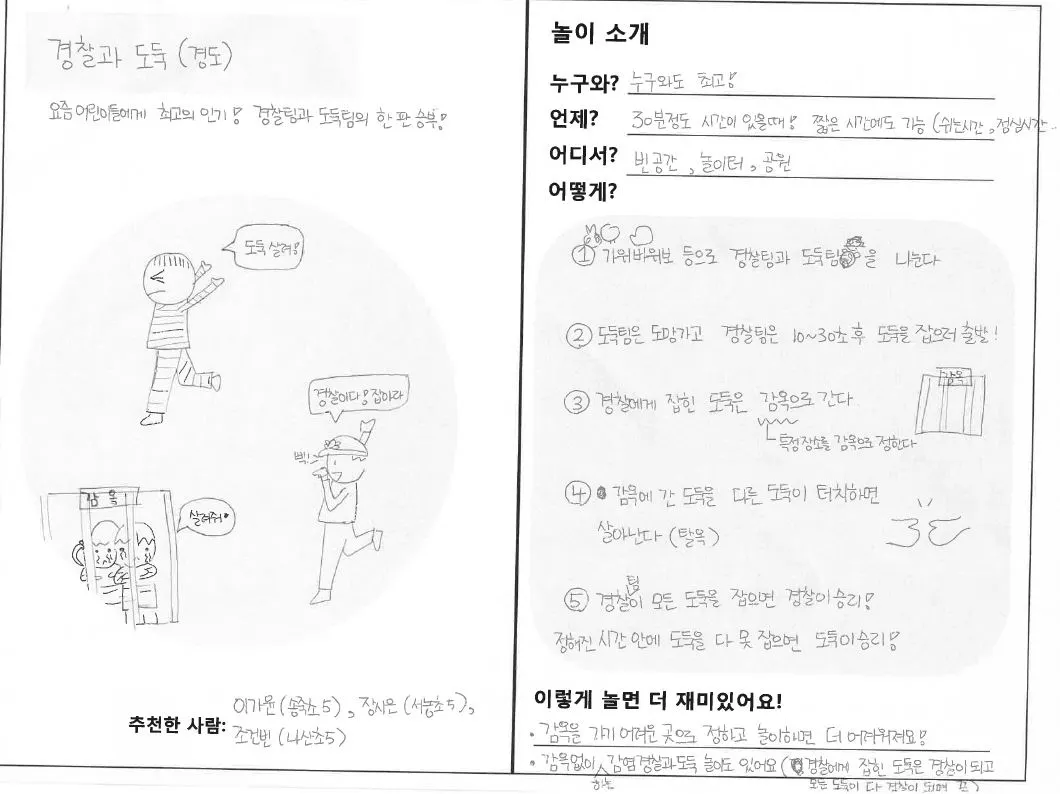 경찰과 도둑 (경도)
요즘 어린이들에게 최고의 인기! 경찰팀과 도둑팀의 한 판 승부!
도둑 살려!
경찰이다! 잡아라
삑!
감옥
살려줘
추천한 사람: 이가윤 (송죽초5), 장시은 (서농초5),
조건빈 (나산초5)
놀이 소개
누구와? 누구와도 최고!
언제? 30분정도 시간이 있을때! 짧은 시간에도 가능 (쉬는시간, 점심시간..
어디서? 빈공간, 놀이터, 공원
어떻게?
① 가위바위보 등으로 경찰팀과 도둑팀을 나눈다
② 도둑팀은 도망가고 경찰팀은 10~30초 후 도둑을 잡으러 출발!
③ 경찰에게 잡힌 도둑은 감옥으로 간다
특정장소를 감옥으로 정한다
감옥
④ 감옥에 간 도둑을 다른 도둑이 터치하면
살아난다 (탈옥)
⑤ 경찰팀이 모든 도둑을 잡으면 경찰이 승리!
정해진 시간 안에 도둑을 다 못 잡으면 도둑이 승리!
이렇게 놀면 더 재미있어요!
• 감옥을 가기 어려운 곳으로 정하고 놀이하면 더 어려워져요!
• 감옥없이 하는 감염경찰과도둑 놀이도 있어요 (경찰에게 잡힌 도둑은 경찰이 되고
모든 도둑이 다 경찰이 되면 끝)